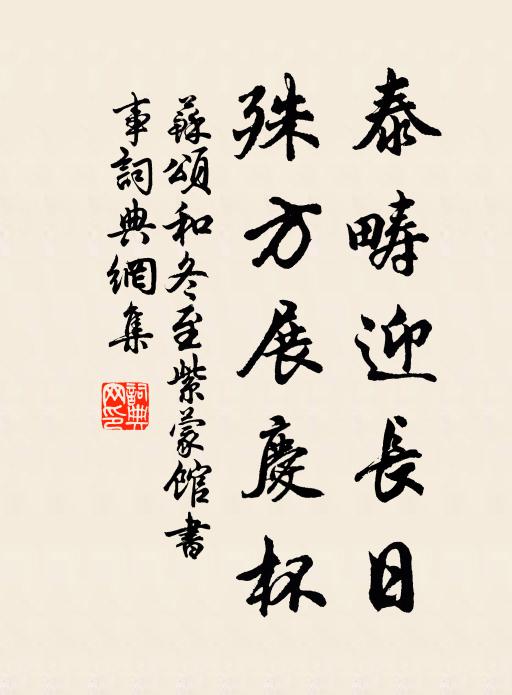 泰疇迎長日
殊方展慶杯
蘇頌和冬至紫蒙館書
事詞典網集
詞典网印